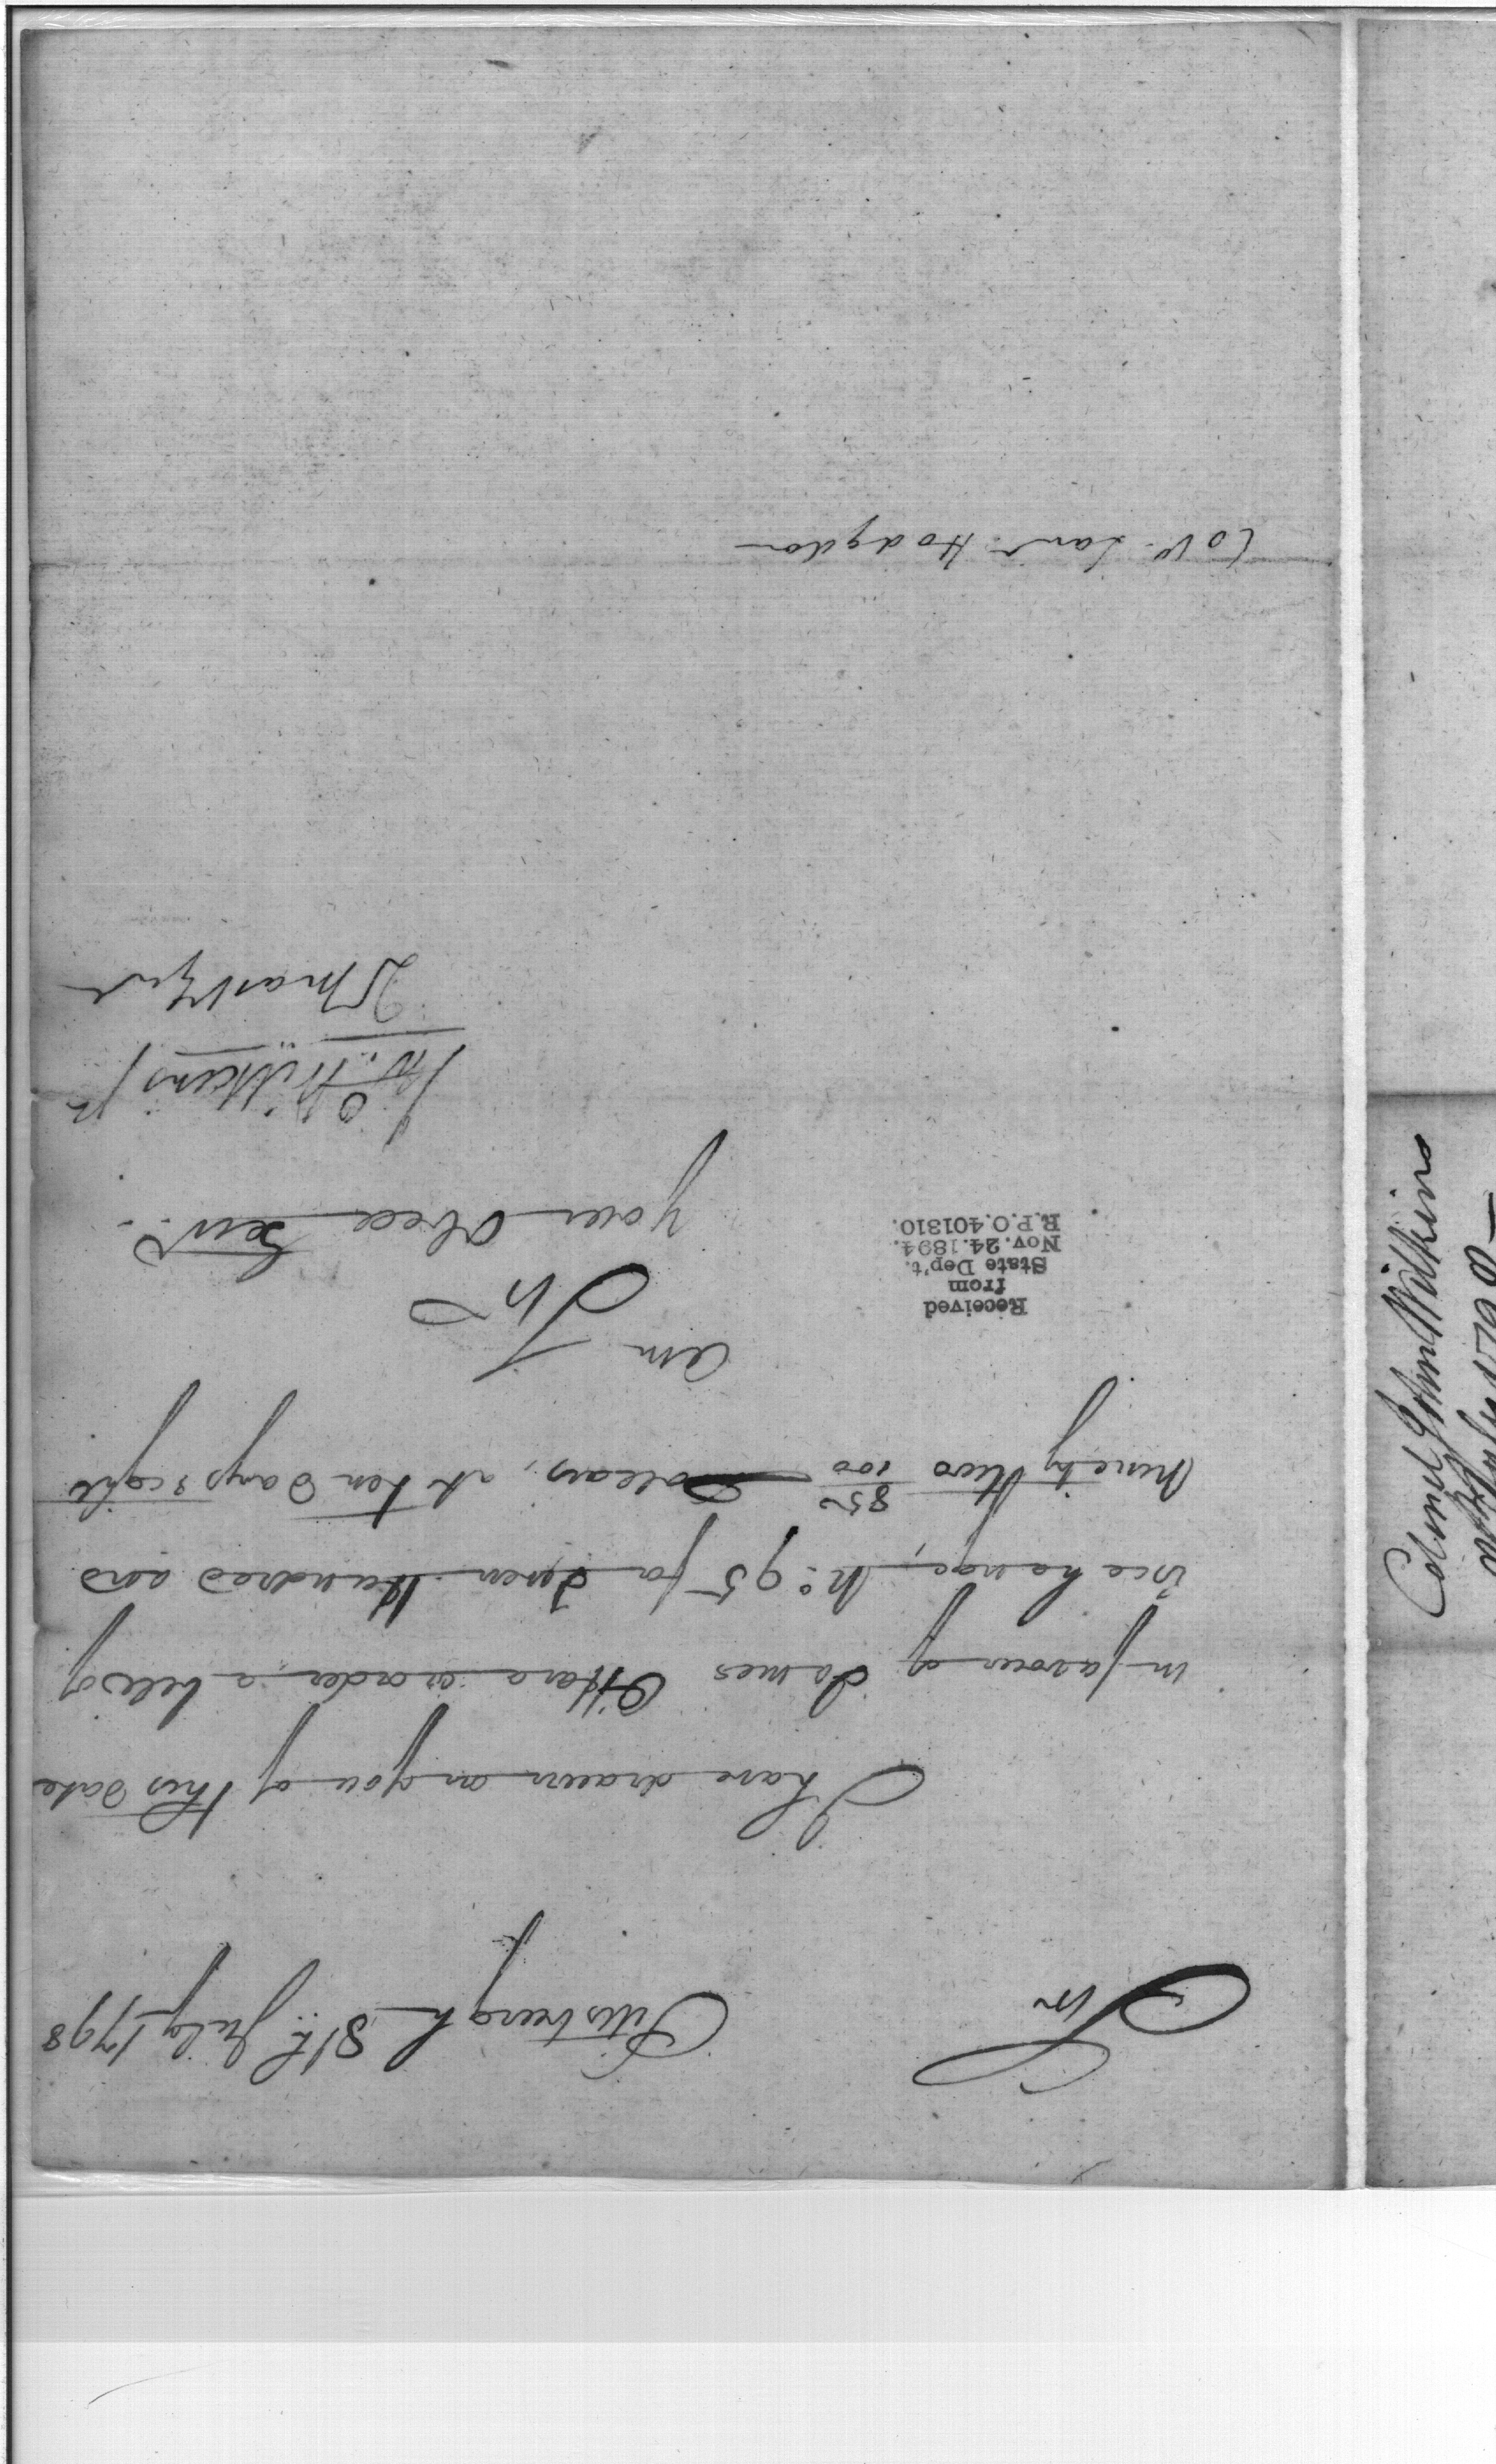 Sir
Pittsburgh 8th July 1798
I have drawn on you of this date
in favour of James OHara or order a bill of
exchange, No. 95 for Seven Hundred and
ninety two 85/100 Dollars, at ten Days sight
am
Sir
your Obed Servt.
Jno. Wilkins Jr
QMastGenl
Received
from
State Dep't.
Nov. 24. 1894.
R.P.O. 401310.
Colo. Saml. Hodgdon
Colonel John Wilkins
8th July 1798